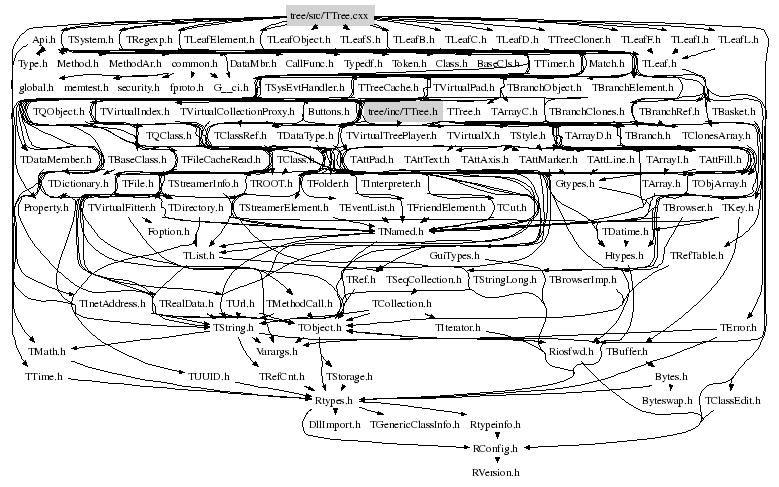 tree/src/TTree.cxx
Api.h TSystem.h TRegexp.h TLeafElement.h TLeafObject.h TLeafS.h TLeafB.h TLeafC.h TLeafD.h TTreeCloner.h TLeafF.h TLeafI.h TLeafL.h
Type.h Method.h MethodAr.h common.h DataMbr.h CallFunc.h Typedf.h Token.h Class.h BaseCls.h TTimer.h Match.h TLeaf.h
global.h memtest.h security.h fproto.h G__ci.h TSysEvtHandler.h TTreeCache.h TVirtualPad.h TBranchObject.h TBranchElement.h
TQObject.h TVirtualIndex.h TVirtualCollectionProxy.h Buttons.h tree/inc/TTree.h TTree.h TArrayC.h TBranchClones.h TBranchRef.h TBasket.h
TQClass.h TClassRef.h TDataType.h TVirtualTreePlayer.h TVirtualX.h TStyle.h TArrayD.h TBranch.h TClonesArray.h
TDataMember.h TBaseClass.h TFileCacheRead.h TClass.h TAttPad.h TAttText.h TAttAxis.h TAttMarker.h TAttLine.h TArrayI.h TAttFill.h
TDictionary.h TFile.h TStreamerInfo.h TROOT.h TFolder.h TInterpreter.h Gtypes.h TArray.h TObjArray.h
Property.h TVirtualFitter.h TDirectory.h TStreamerElement.h TEventList.h TFriendElement.h TCut.h TBrowser.h TKey.h
Foption.h TNamed.h TDatime.h
TList.h GuiTypes.h Htypes.h TRefTable.h
TRef.h TSeqCollection.h TStringLong.h TBrowserImp.h
TInetAddress.h TRealData.h TUrl.h TMethodCall.h TCollection.h
TString.h TObject.h TIterator.h TError.h
TMath.h Varargs.h Riosfwd.h TBuffer.h
TTime.h TUUID.h TRefCnt.h TStorage.h Bytes.h
Rtypes.h Byteswap.h TClassEdit.h
DllImport.h TGenericClassInfo.h Rtypeinfo.h
RConfig.h
RVersion.h